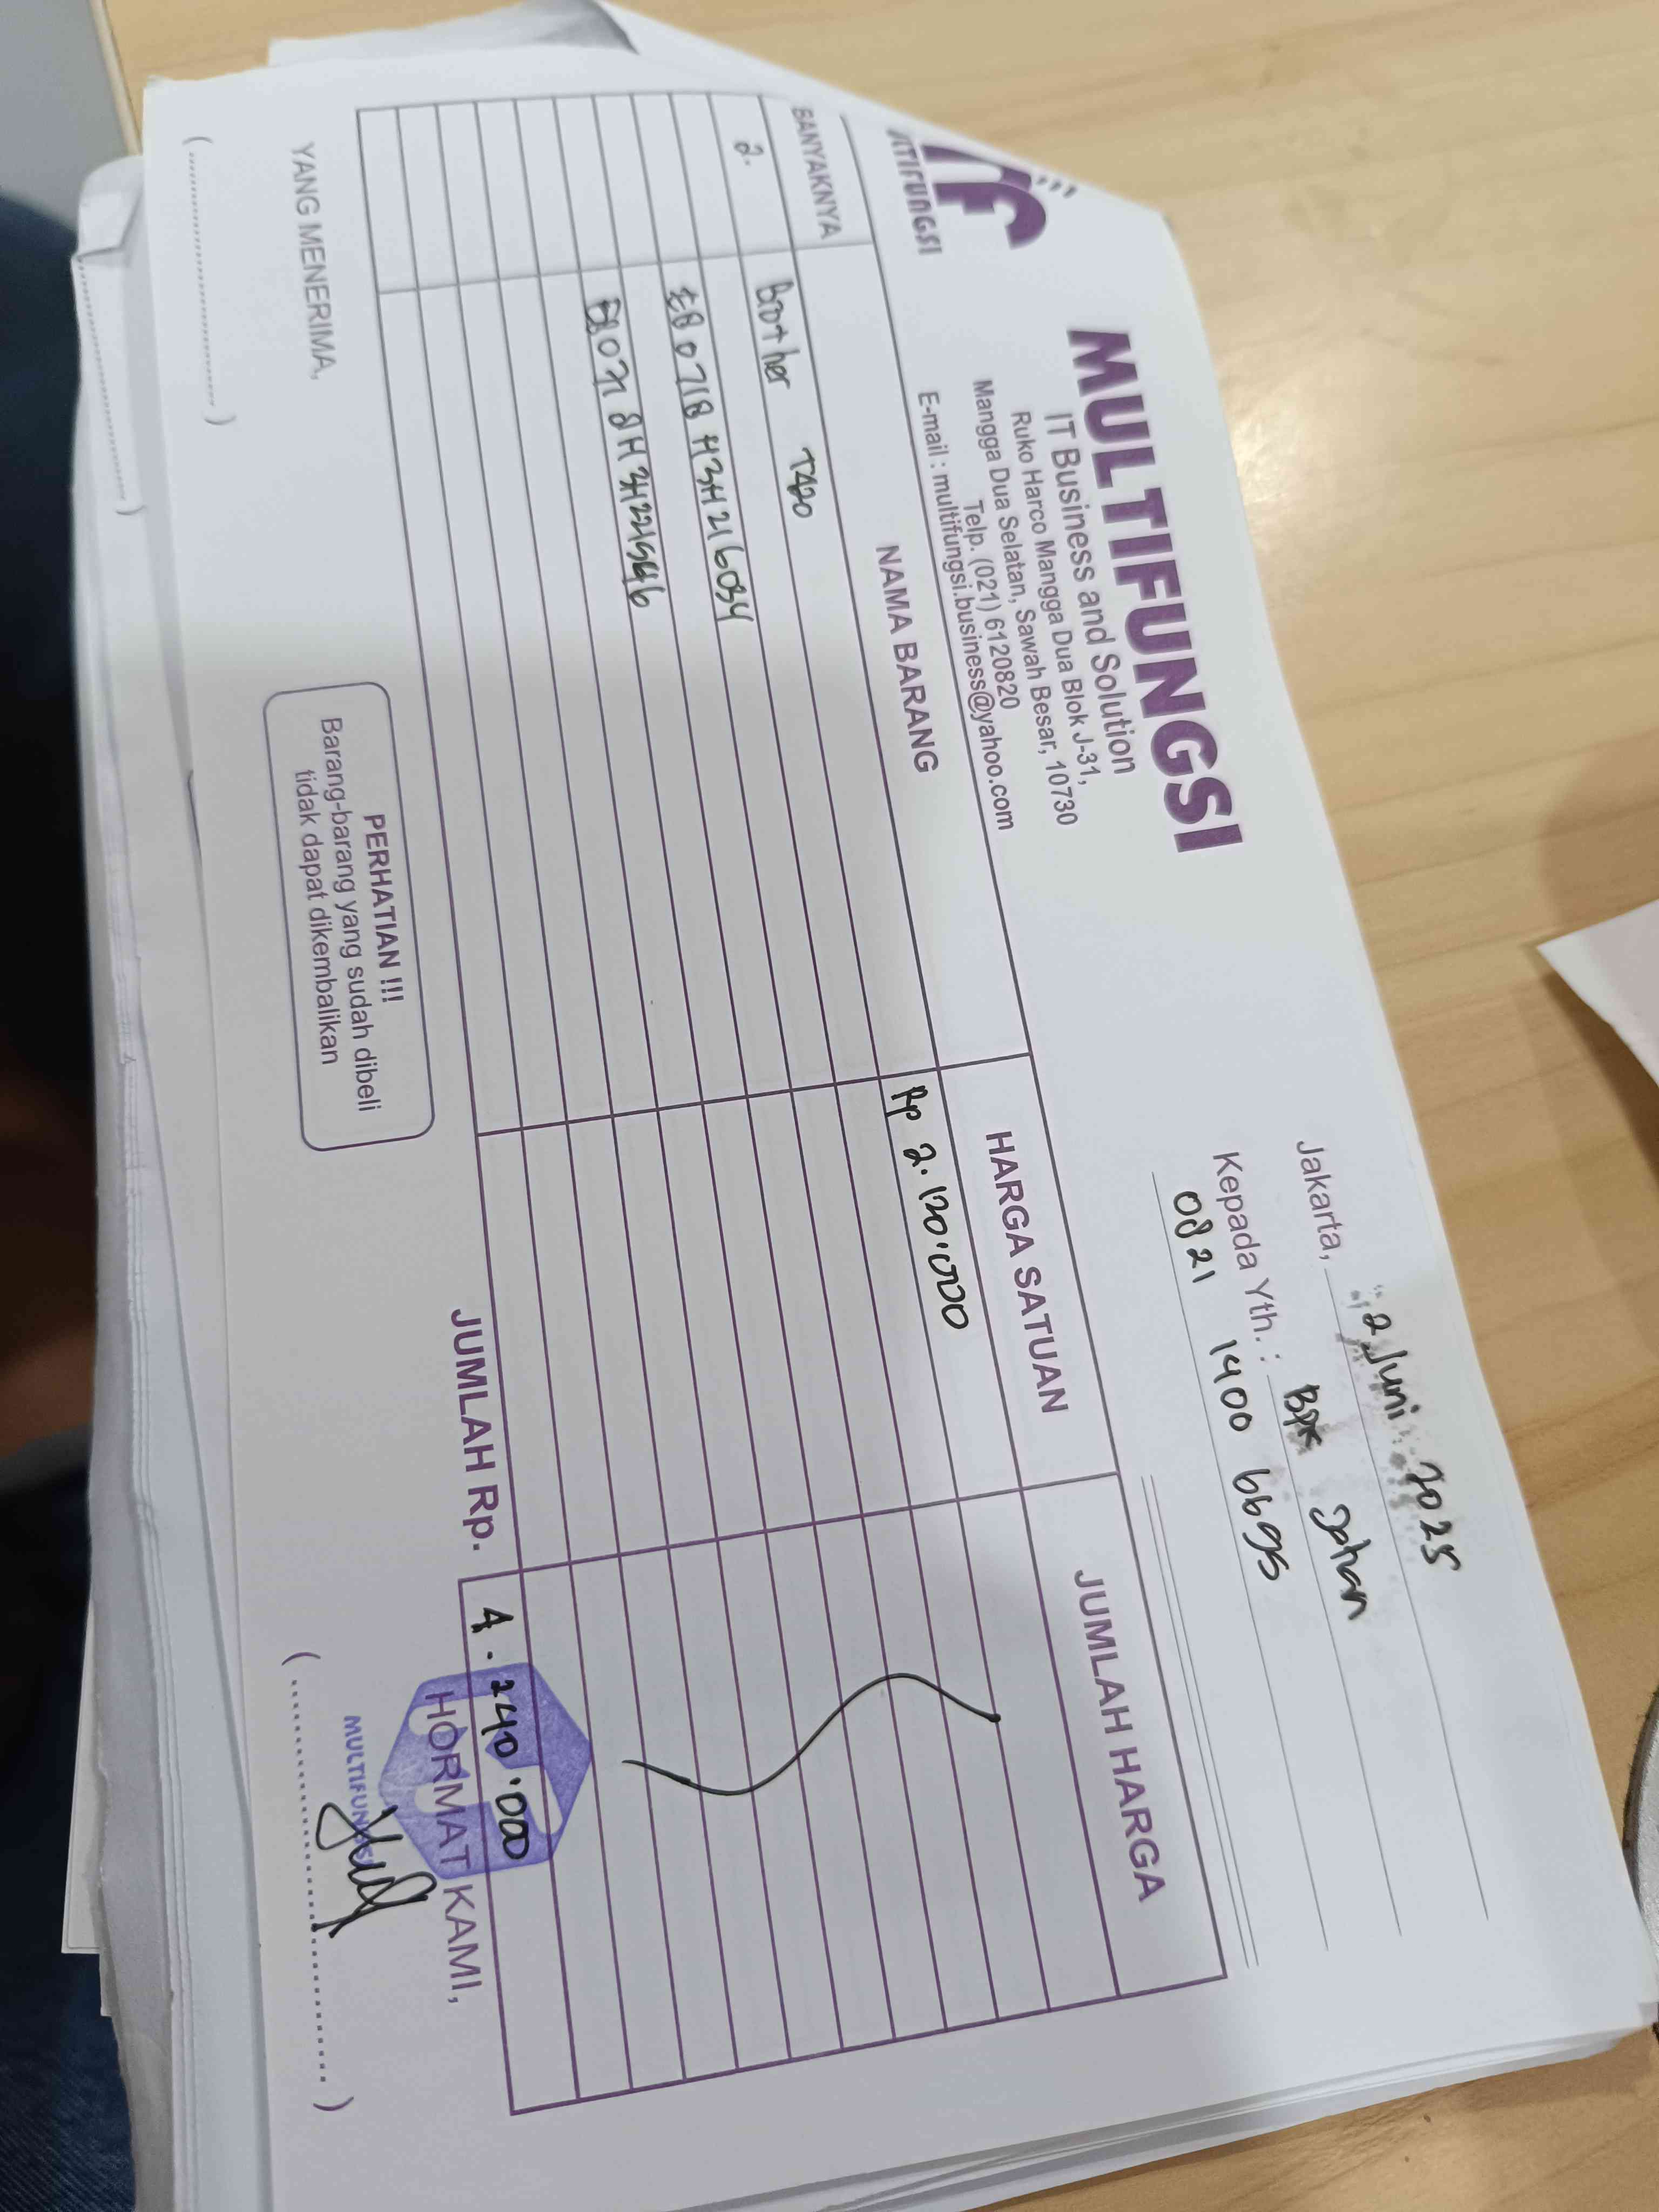 MULTIFUNGSI
IT Business and Solution
Ruko Harco Mangga Dua Blok J-31,
Mangga Dua Selatan, Sawah Besar, 10730
Telp. (021) 6120820
E-mail : multifungsi.business@yahoo.com
Jakarta, 2 Juni 2025
Kepada Yth. : Bpk Johan
0821 1400 6695
BANYAKNYA NAMA BARANG HARGA SATUAN JUMLAH HARGA
2. Brother T420 Rp 2.120.000
JUMLAH Rp. 4.240.000
YANG MENERIMA,
PERHATIAN !!!
Barang-barang yang sudah dibeli
tidak dapat dikembalikan
HORMAT KAMI,
MULTIFUNGSI